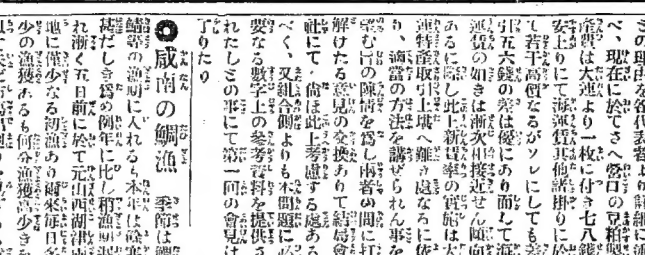 その理由を各代表者より詳細に
べ、現在に於てさへ營口の豆粕製
產費は大連より一枚に付き七八錢
安上りにて海運賃其他諸掛りに於
て若干高價なるがソレにしても差
引五六錢の差は優にあり而して海
運賃の如きは漸次相接近せん傾向
あるに際し此上新賃率の實施は大
連特產取引上堪へ難き處なるに依
り、適當の方法を講ぜられん事を
望む旨の陳情を爲し兩者の間に打
解けたる意見の交換ありて結局會
社にて、尙ほ此上考慮する處ある
べく、又組合側よりも本問題に必
要なる數字上の參考資料を提供さ
れたしとの事にて第一回の會見は
了りたり
◉咸南の鯛漁 季節は
鯖等の漁期に入れるも本年は餘寒
甚だしき爲め例年に比し稍漁期遲
れ漸く五日前に於て元山西湖津兩
地に僅少なる初漁あり爾來每日多
少の漁獲あるも何分漁獲高少き